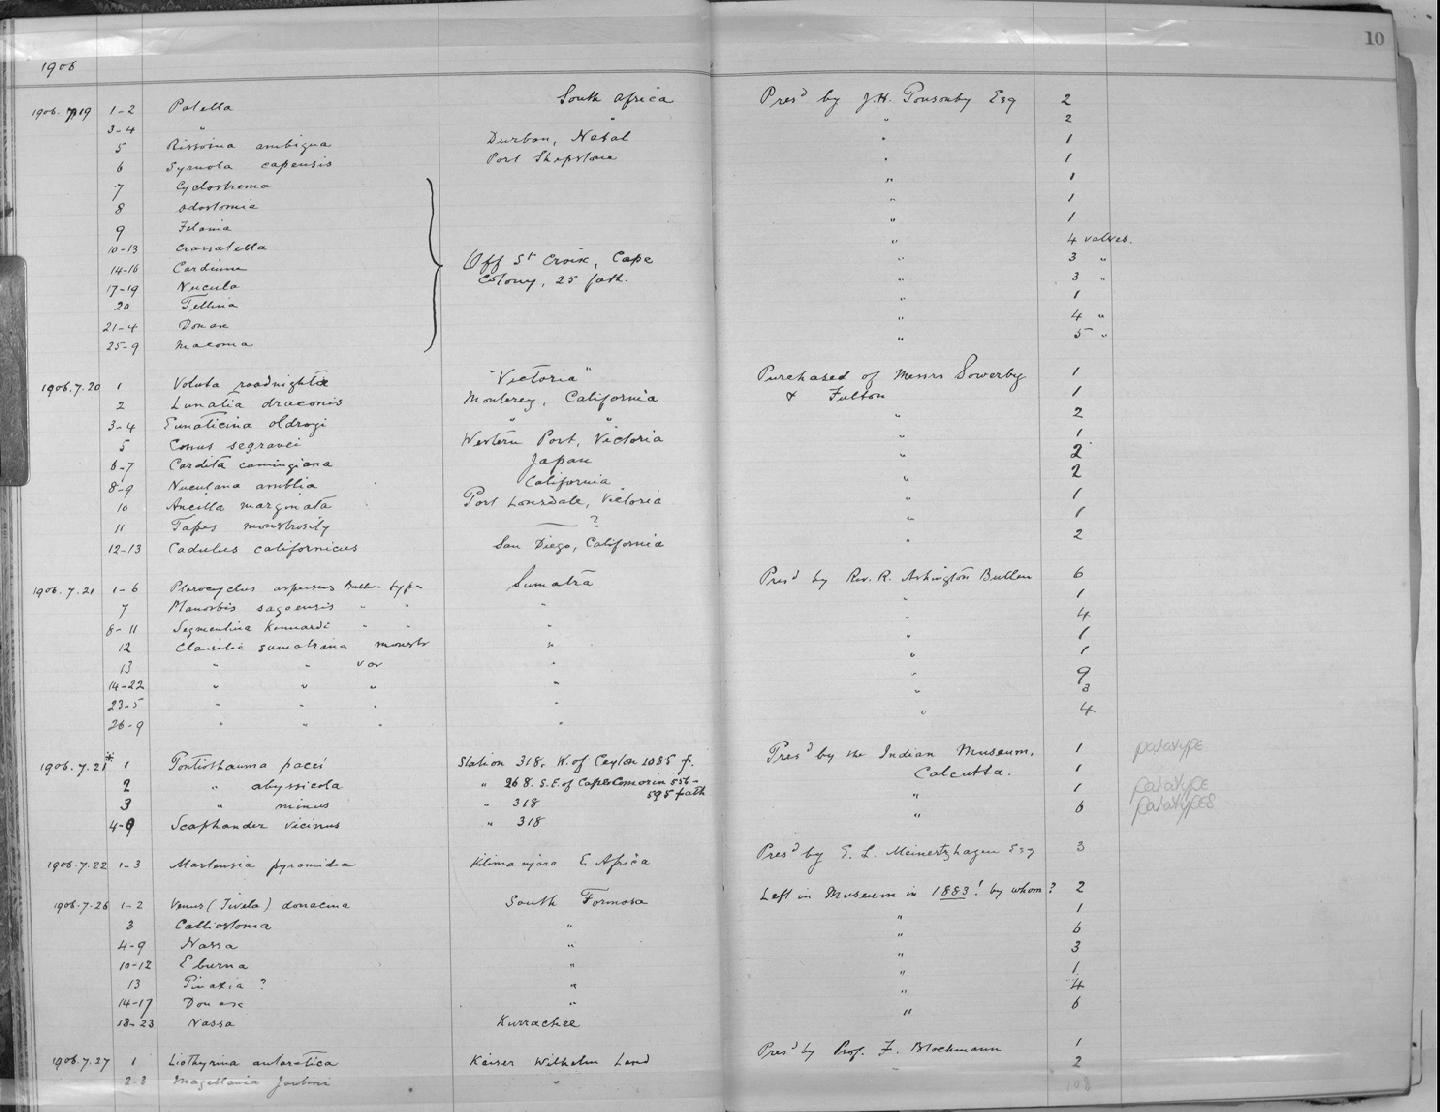 10
1906
1906.7.19 1-2 Patella South Africa Pres^d by J.H. Ponsonby Esq 2
3-4 " " " 2
5 Rissoina ambigua Durban, Natal " 1
6 Syrnola capensis Port Shepstone " 1
7 Cyclostrema " 1
8 Odostomia " 1
9 " 1
10-13 Crassatella " 4 valves.
14-16 Cardium Off S^t Croix, Cape " 3 "
17-19 Nucula Colony, 25 fath. " 3 "
20 Tellina " 1
21-4 Donax " 4 "
25-9 Macoma " 5 "
1906.7.20 1 Voluta roadnightæ "Victoria" Purchased of Messrs Sowerby 1
2 Lunatia draconis Monterey, California & Fulton 1
3-4 Eunaticina oldrogi " " " 2
5 Conus segravei Western Port, Victoria " 1
6-7 Cardita cumingiana Japan " 2
8-9 Nuculana amblia California " 2
10 Ancilla marginata Port Lonsdale, Victoria " 1
11 Tapes monstrosity ? " 1
12-13 Cadulus californicus San Diego, California " 2
1906.7.21 1-6 Pterocyclus Bull. type Sumatra Pres^d by Rev. R. Ashington Bullen 6
7 Planorbis sagoensis " " " " 1
8-11 Segmentina Kennardi " " " " 4
12 Clausilia sumatrana monstr " " 1
13 " " var " " 1
14-22 " " " " " 9
23-5 " " " " " 3
26-9 " " " " " 4
1906.7.21* 1 Pontiothauma pacei Station 318, W. of Ceylon 1085 f. Pres^d by the Indian Museum, 1 paratype
2 " abyssicola " 268. S.E. of Cape Comorin 556-595 fath Calcutta. 1
3 " minus " 318 " 1 paratype
4-9 Scaphander vicinus " 318 " 6 paratypes
1906.7.22 1-3 Martensia pyramidea Kilimanjaro E. Africa Pres^d by E. L. Meinertzhagen Esq 3
1906.7.26 1-2 Venus (Tivela) donacina South Formosa Left in Museum in 1883! by whom? 2
3 Calliostoma " " 1
4-9 Nassa " " 6
10-12 Eburna " " 3
13 ? " " 1
14-17 Donax " " 4
18-23 Nassa Kurrachee " 6
1906.7.27 1 Liothyrina antarctica Kaiser Wilhelm Land Pres^d by Prof. F. Blochmann 1
2-3 Magellania Joubini " " 2
108